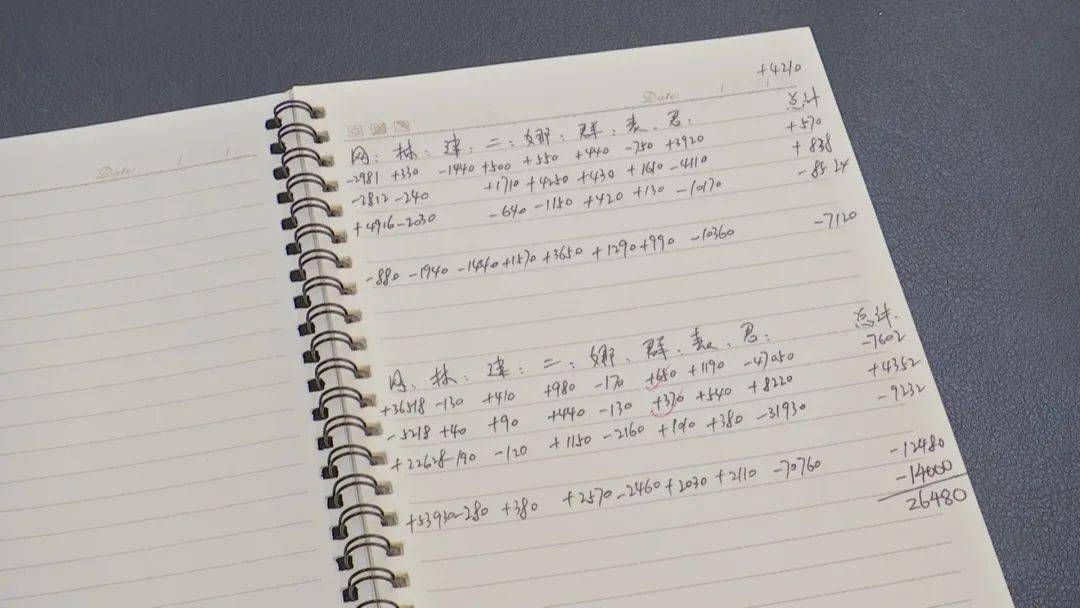 Date:
+4210
Date:
网: 林: 建: 二: 娜: 群: 表. 君: 总计
-2981 +330 -1440 +500 +550 +440 -750 +3920 +570
-2812 -240 +1710 +4250 +430 +1610 -4110 +838
+4916 -2030 -640 -1150 +420 +130 -10170 -8524
-880 -1940 -1440 +1570 +3650 +1290 +990 -10360 -7120
网. 林. 建: 二: 娜. 群. 表. 君: 总计.
+36518 -130 +410 +980 -170 +650 +1190 -47050 -7602
-5218 +40 +90 +440 -130 +370 +540 +8220 +4352
+22628 -190 -120 +1150 -2160 +1010 +380 -31930 -9232
+53930 -280 +380 +2570 -2460 +2030 +2110 -70760 -12480
-14000
26480